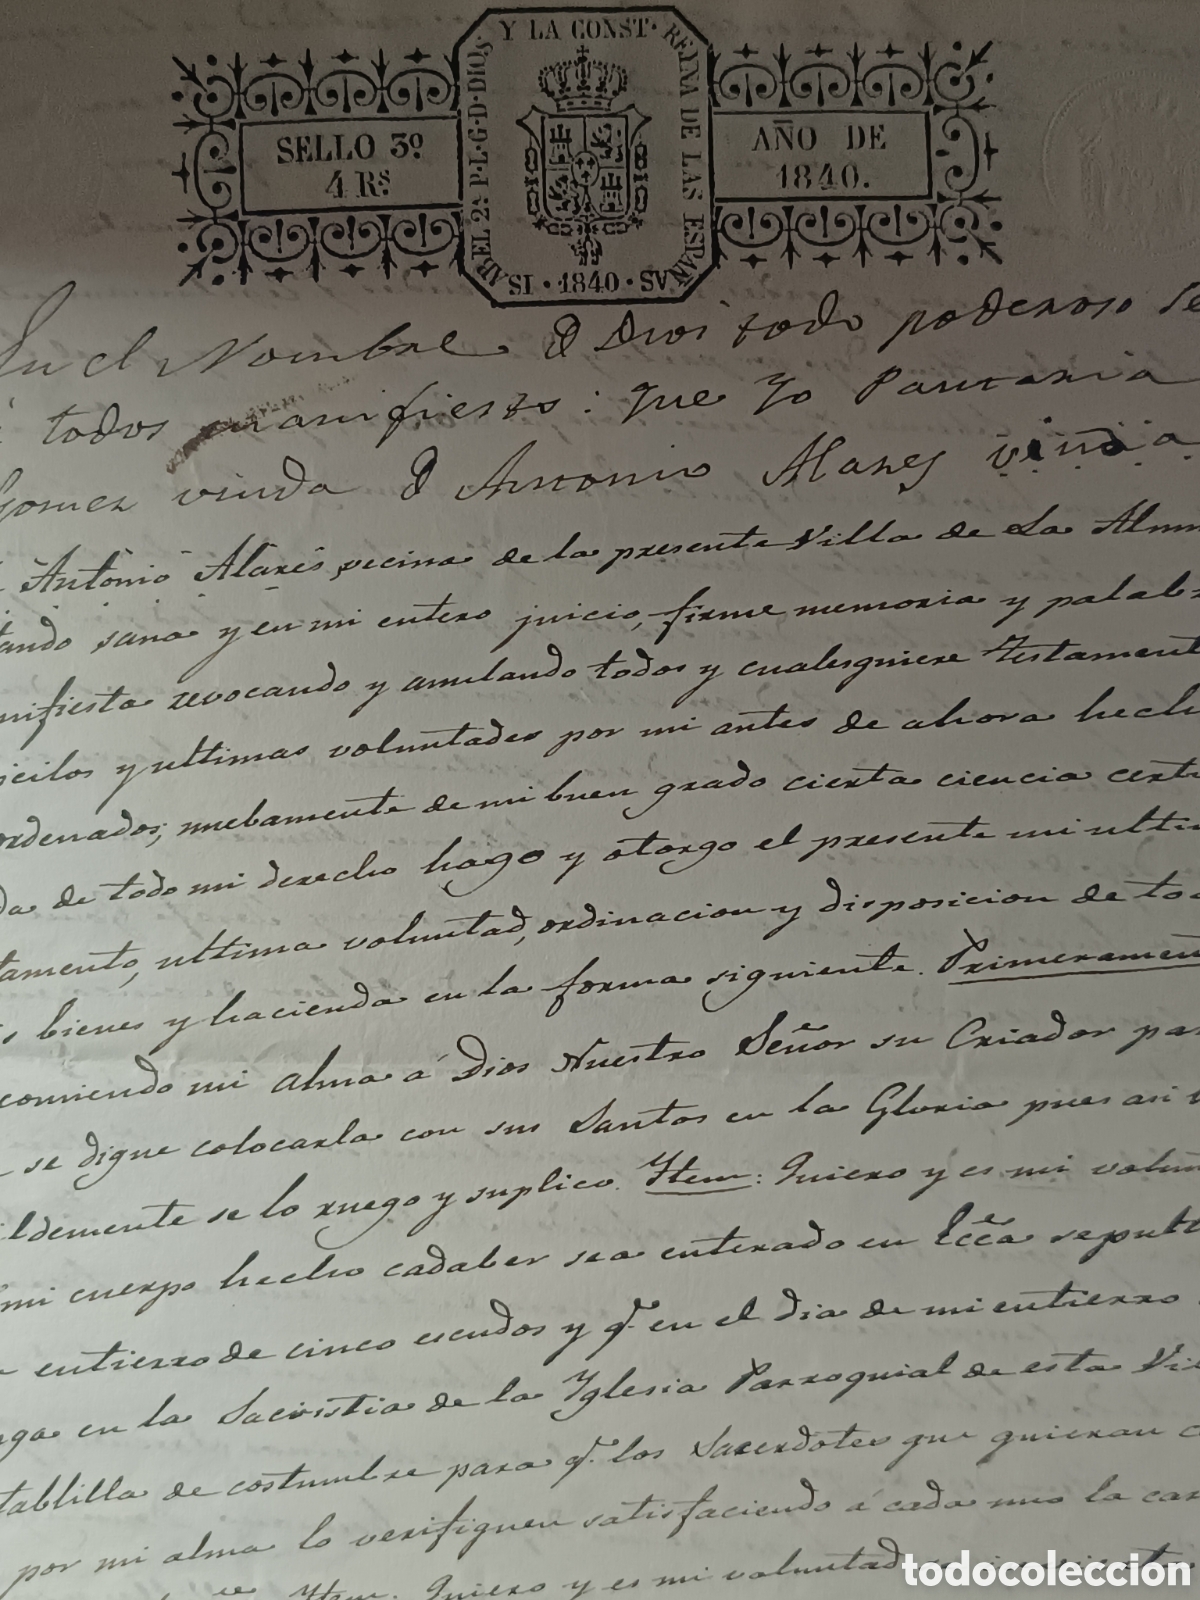 SELLO 3º
4 Rs
ISABEL 2ª P. L. G. D. DIOS. Y LA CONST. REYNA DE LAS ESPAÑAS
· 1840 ·
AÑO DE
1840.
En el Nombre D Dios todo poderoso Se
á todos manifiesto: que Yo Pantaria
Gomez viuda D Antonio Alares viuda
Antonio Alares, vecina de la presente Villa de La Almu
tando sana y en mi entero juicio, firme memoria y palabr
nifiesta revocando y anulando todos y cualesquiere Testament
icilos y ultimas voluntades por mi antes de ahora hech
ordenados; nuebamente de mi buen grado cierta ciencia cert
da de todo mi derecho hago y otorgo el presente mi ultim
tamento, ultima voluntad, ordinacion y disposicion de tod
s bienes y hacienda en la forma siguiente. Primerament
comiendo mi alma á Dios Nuestro Señor su Criador par
se digne colocarla con sus Santos en la Gloria pues asi
ildemente se lo ruego y suplico. Item: Quiero y es mi volun
mi cuerpo hecho cadaber sea enterrado en Ecca sepult
entierro de cinco escudos y q.e en el dia de mi entierro
nga en la Sacristia de la Yglesia Parroquial de esta Vi
tablilla de costumbre para q.e los Sacerdotes que quieran c
por mi alma lo verifiquen satisfaciendo á cada uno la car
Item. Quiero y es mi voluntad
todocoleccion